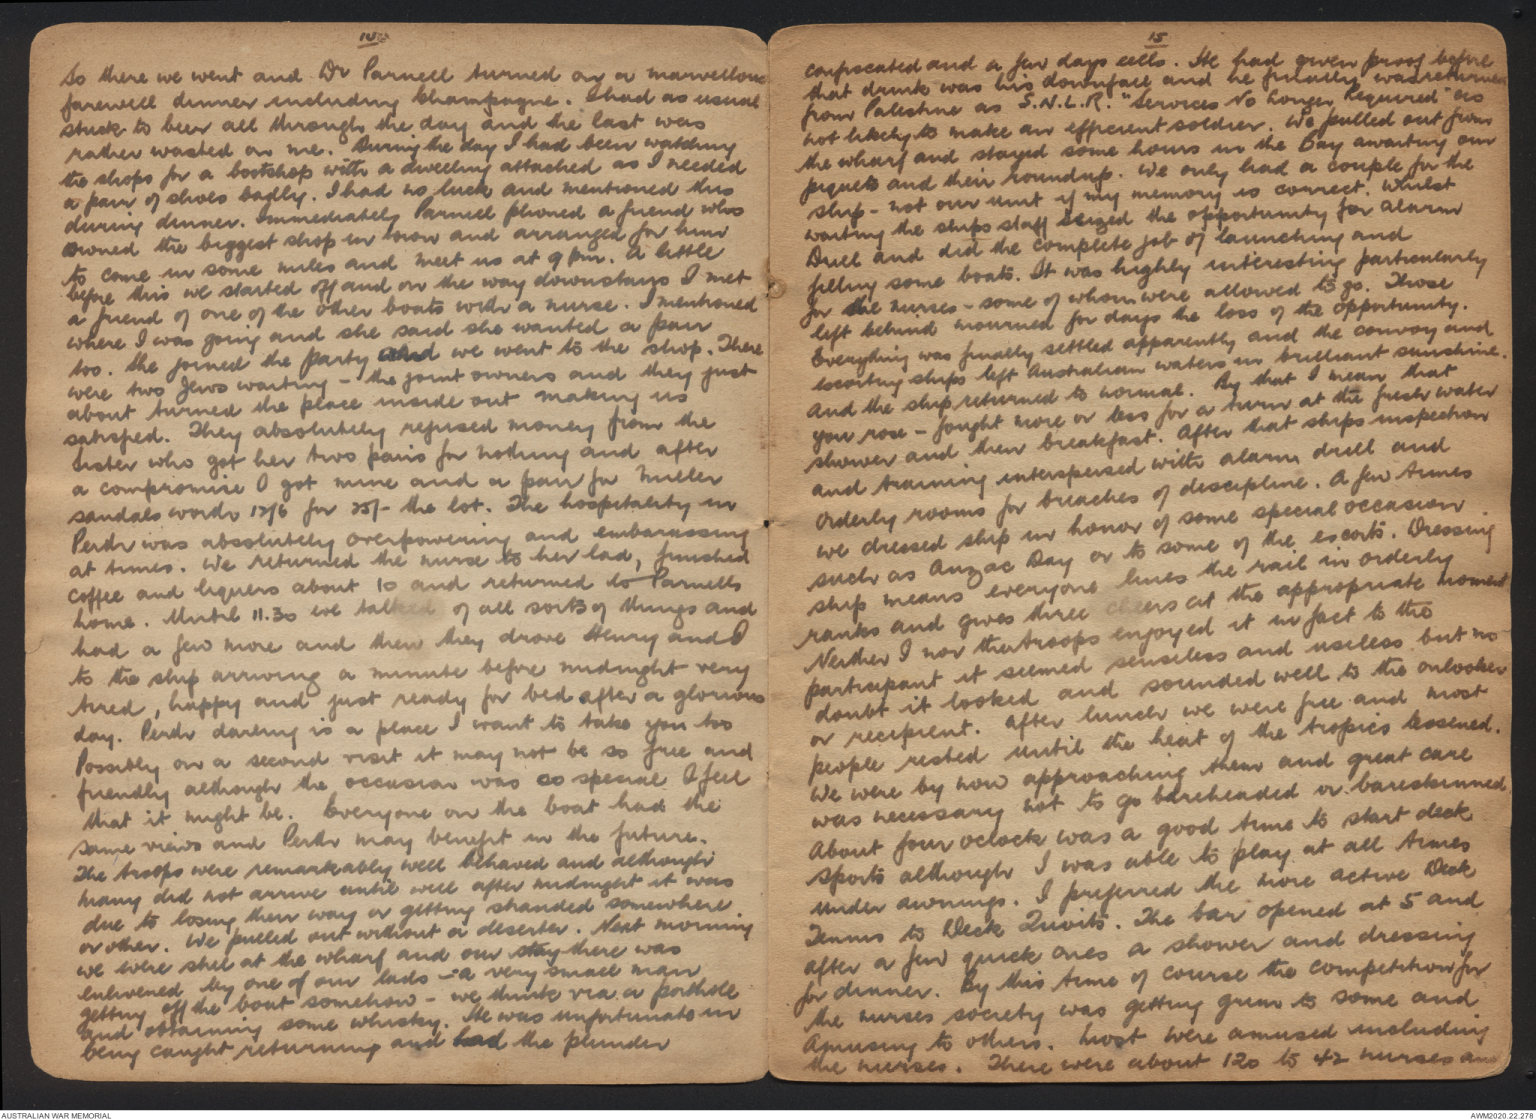 14
So there we went and Dr Parnell turned on a marvellous
farewell dinner including Champagne. I had as usual
stuck to beer all through the day and the last was
rather wasted on me. During the day I had been watching
the shops for a bootshop with a dwelling attached as I needed
a pair of shoes badly. I had no luck and mentioned this
during dinner. Immediately Parnell phoned a friend who
owned the biggest shop in town and arranged for him
to come in some miles and meet us at 9 pm. A little
before this we started off and on the way downstairs I met
a friend of one of the other boats with a nurse. I mentioned
where I was going and she said she wanted a pair
too. She joined the party and we went to the shop. There
were two Jews waiting - the joint owners and they just
about turned the place inside out making us
satisfied. They absolutely refused money from the
Sister who got her two pairs for nothing and after
a compromise I got mine and a pair for
sandals worth 17/6 for 25/- the lot. The hospitality in
Perth was absolutely overpowering and embarassing
at times. We returned the nurse to her lad, finished
coffee and liquers about 10 and returned to Parnells
home. Until 11.30 we talked of all sorts of things and
had a few more and then they drove Henry and I
to the ship arriving a minute before midnight very
tired, happy and just ready for bed after a glorious
day. Perth darling is a place I want to take you too
Possibly on a second visit it may not be so free and
friendly although the occasion was so special I feel
that it might be. Everyone on the boat had the
same views and Perth may benefit in the future.
The troops were remarkably well behaved and although
many did not arrive until well after midnight it was
due to losing their way or getting stranded somewhere
or other. We pulled out without a deserter. Next morning
we were still at the wharf and our stay there was
enlivened by one of our lads - a very small man
getting off the boat somehow - we think via a porthole
and obtaining some whisky. He was unfortunate in
being caught returning and had the plunder
15
confiscated and a few days cells. He had given proof before
that drink was his downfall and he finally was returned
from Palestine as S.N.L.R. "Services No Longer Required" as
not likely to make an efficient soldier. We pulled out from
the wharf and stayed some hours in the Bay awaiting our
piquets and their roundup. We only had a couple for the
ship - not our unit if my memory is correct. Whilst
waiting the ships staff seized the opportunity for Alarm
Drill and did the complete job of launching and
filling some boats. It was highly interesting particularly
for the nurses - some of whom were allowed to go. Those
left behind mourned for days the loss of the opportunity.
Everything was finally settled apparently and the convoy and
escorting ships left Australian waters in brilliant sunshine.
And the ship returned to normal. By that I mean that
you rose - fought more or less for a turn at the fresh water
shower and then breakfast. After that ships inspection
and training interspersed with alarm drill and
orderly rooms for breaches of discipline. A few times
we dressed ship in honor of some special occasion
such as Anzac Day or to some of the escorts. Dressing
ship means everyone lines the rail in orderly
ranks and gives three cheers at the appropriate moment
Neither I nor the troops enjoyed it in fact to the
participant it seemed senseless and useless but no
doubt it looked and sounded well to the onlooker
or recipient. After lunch we were free and most
people rested until the heat of the tropics lessened.
We were by now approaching them and great care
was necessary not to go bareheaded or bareskinned
About four oclock was a good time to start deck
sports although I was able to play at all times
under awnings. I preferred the more active Deck
Tennis to Deck Quoits. The bar opened at 5 and
after a few quick ones a shower and dressing
for dinner. By this time of course the competition for
the nurses society was getting grim to some and
Amusing to others. Most were amused including
the nurses. There were about 120 to 42 nurses and
AUSTRALIAN WAR MEMORIAL
AWM2020.22.278